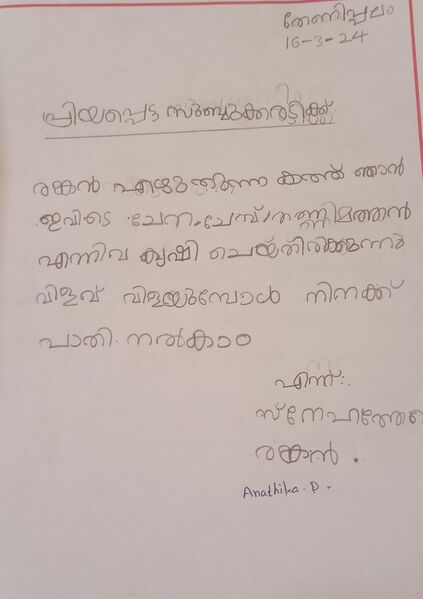 തേഞ്ഞിപ്പലം
16-3-24
പ്രിയപ്പെട്ട
രങ്കൻ എഴുതുന്ന കത്ത് ഞാൻ
ഇവിടെ ചേന, ചേമ്പ്, തണ്ണിമത്തൻ
എന്നിവ കൃഷി ചെയ്തിരിക്കുന്നു
വിളവ് വിളയുമ്പോൾ നിനക്ക്
പാതി നൽകാം
എന്ന്:
സ്നേഹത്തോടെ
രങ്കൻ.
Anathika. P.